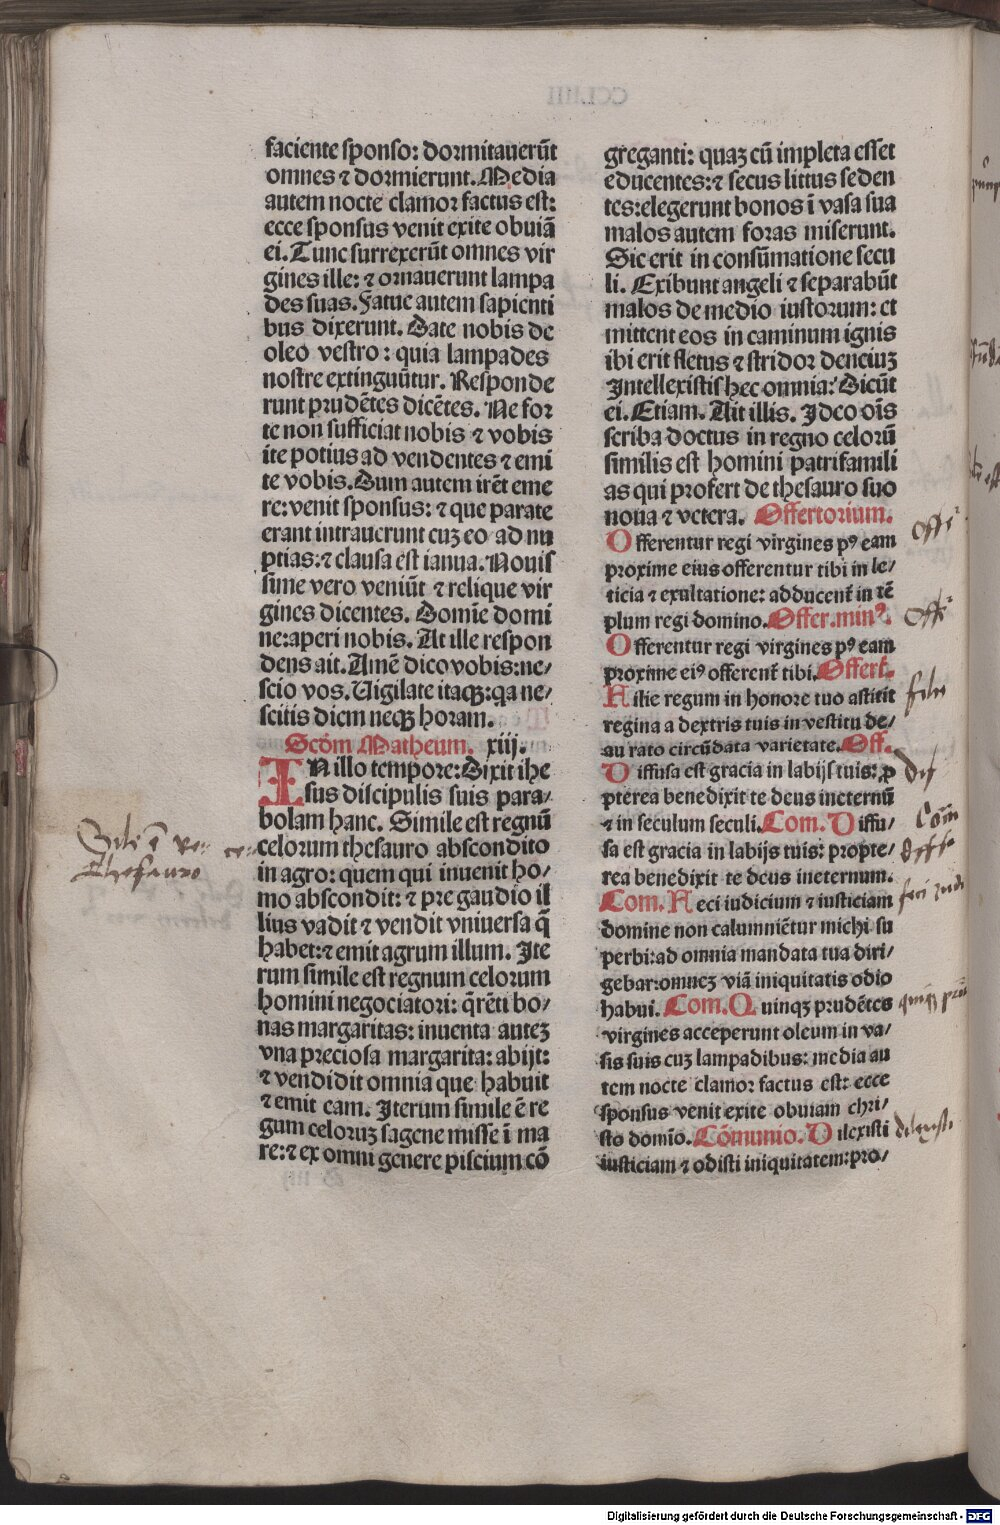 faciente sponso: dormitauerūt
omnes ⁊ dormierunt. Media
autem nocte clamor factus est:
ecce sponsus venit exite obuiā
ei. Tunc surrexerūt omnes vir
gines ille: ⁊ ornauerunt lampa
des suas. Fatue autem sapienti
bus dixerunt. Date nobis de
oleo vestro: quia lampades
nostre extinguūtur. Responde
runt prudētes dicētes. Ne for
te non sufficiat nobis ⁊ vobis
ite potius ad vendentes ⁊ emi
te vobis. Dum autem irēt eme
re: venit sponsus: ⁊ que parate
erant intrauerunt cuʒ eo ad nu
ptias: ⁊ clausa est ianua. Nouis
sime vero veniūt ⁊ relique vir
gines dicentes. Domīe domi
ne: aperi nobis. At ille respon
dens ait. Amē dico vobis: ne/
scio vos. Uigilate itaqꝫ: qa ne/
scitis diem neqꝫ horam.
Scd̄m Matheum. xiij.
IN illo tempore: Dixit ihe
sus discipulis suis para/
bolam hanc. Simile est regnū
celorum thesauro abscondito
in agro: quem qui inuenit ho/
mo abscondit: ⁊ pre gaudio il
lius vadit ⁊ vendit vniuersa q̄
habet: ⁊ emit agrum illum. Ite
rum simile est regnum celorum
homini negociatori: q̄rēti bo/
nas margaritas: inuenta auteʒ
vna preciosa margarita: abijt:
⁊ vendidit omnia que habuit
⁊ emit eam. Iterum simile ē re
gum celoruʒ sagene misse ī ma
re: ⁊ ex omni genere piscium cō
greganti: quaʒ cū impleta esset
educentes: ⁊ secus littus seden
tes: elegerunt bonos ī vasa sua
malos autem foras miserunt.
Sic erit in consūmatione secu
li. Exibunt angeli ⁊ separabūt
malos de medio iustorum: et
mittent eos in caminum ignis
ibi erit fletus ⁊ stridor denciuʒ
Intellexistis hec omnia: Dicūt
ei. Etiam. Ait illis. Ideo oīs
scriba doctus in regno celorū
similis est homini patrifamili
as qui profert de thesauro suo
noua ⁊ vetera. Offertorium.
Offerentur regi virgines pꝰ eam
proxime eius offerentur tibi in le/
ticia ⁊ exultatione: adducent̄ in tē
plum regi domino. Offer. minꝰ.
Offerentur regi virgines pꝰ eam
proxime eiꝰ offerent̄ tibi. Offert.
Filie regum in honore tuo astitit
regina a dextris tuis in vestitu de/
au rato circūdata varietate. Off.
Diffusa est gracia in labijs tuis: ꝓ
pterea benedixit te deus ineternū
⁊ in seculum seculi. Com. Diffu/
sa est gracia in labijs tuis: propte/
rea benedixit te deus ineternum.
Com. Feci iudicium ⁊ iusticiam
domine non calumniētur michi su
perbi: ad omnia mandata tua diri/
gebar: omneʒ viā iniquitatis odio
habui. Com. Quinqꝫ prudētes
virgines acceperunt oleum in va/
sis suis cuʒ lampadibus: media au
tem nocte clamor factus est: ecce
sponsus venit exite obuiam chri/
sto domīo. Cōmunio. Dilexisti
iusticiam ⁊ odisti iniquitatem: pro/
thesauro
Digitalisierung gefördert durch die Deutsche Forschungsgemeinschaft - DFG